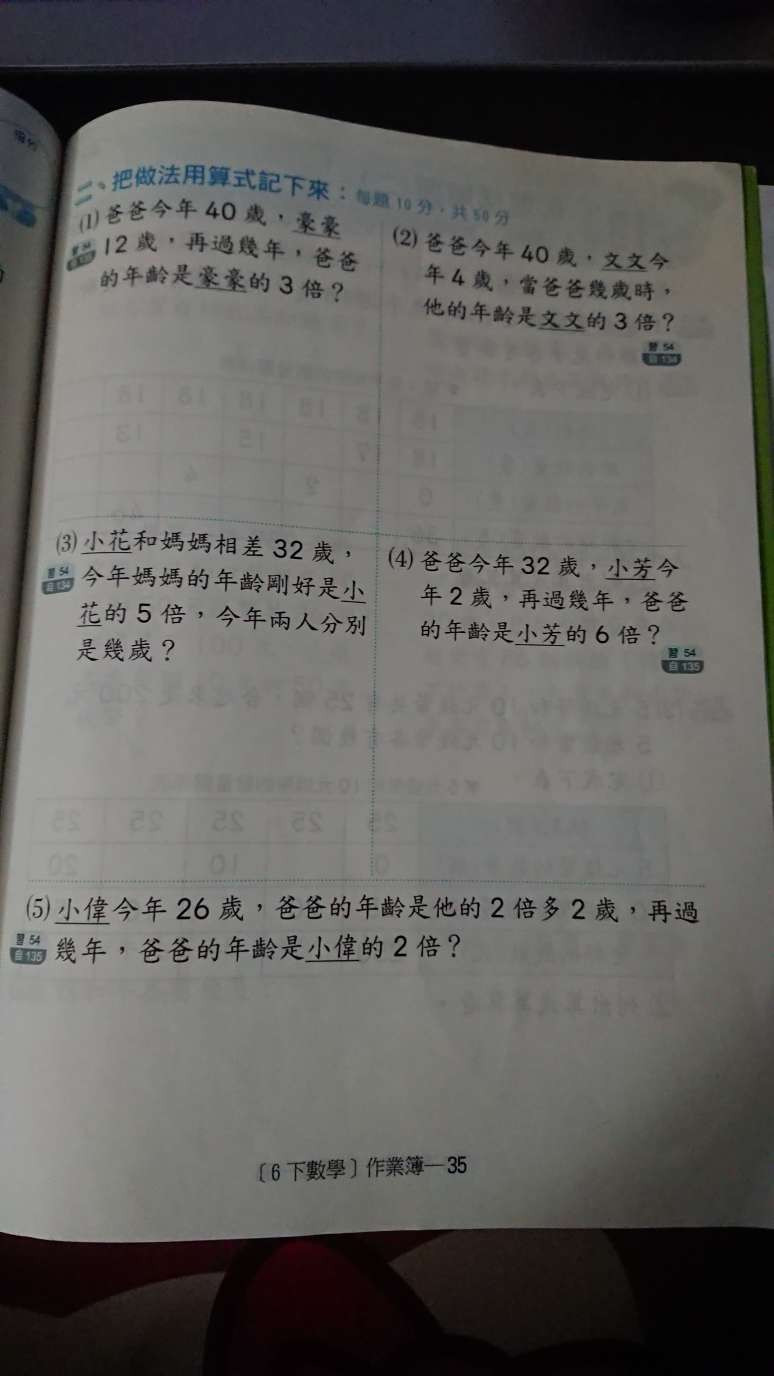 二、把做法用算式記下來：每題 10 分，共 50 分
(1) 爸爸今年 40 歲，豪豪
12 歲，再過幾年，爸爸
的年齡是豪豪的 3 倍？
(2) 爸爸今年 40 歲，文文今
年 4 歲，當爸爸幾歲時，
他的年齡是文文的 3 倍？
習 54
自 134
(3) 小花和媽媽相差 32 歲，
今年媽媽的年齡剛好是小
花的 5 倍，今年兩人分別
是幾歲？
習 54
自 134
(4) 爸爸今年 32 歲，小芳今
年 2 歲，再過幾年，爸爸
的年齡是小芳的 6 倍？
習 54
自 135
(5) 小偉今年 26 歲，爸爸的年齡是他的 2 倍多 2 歲，再過
幾年，爸爸的年齡是小偉的 2 倍？
習 54
自 135
〔6 下數學〕作業簿—35